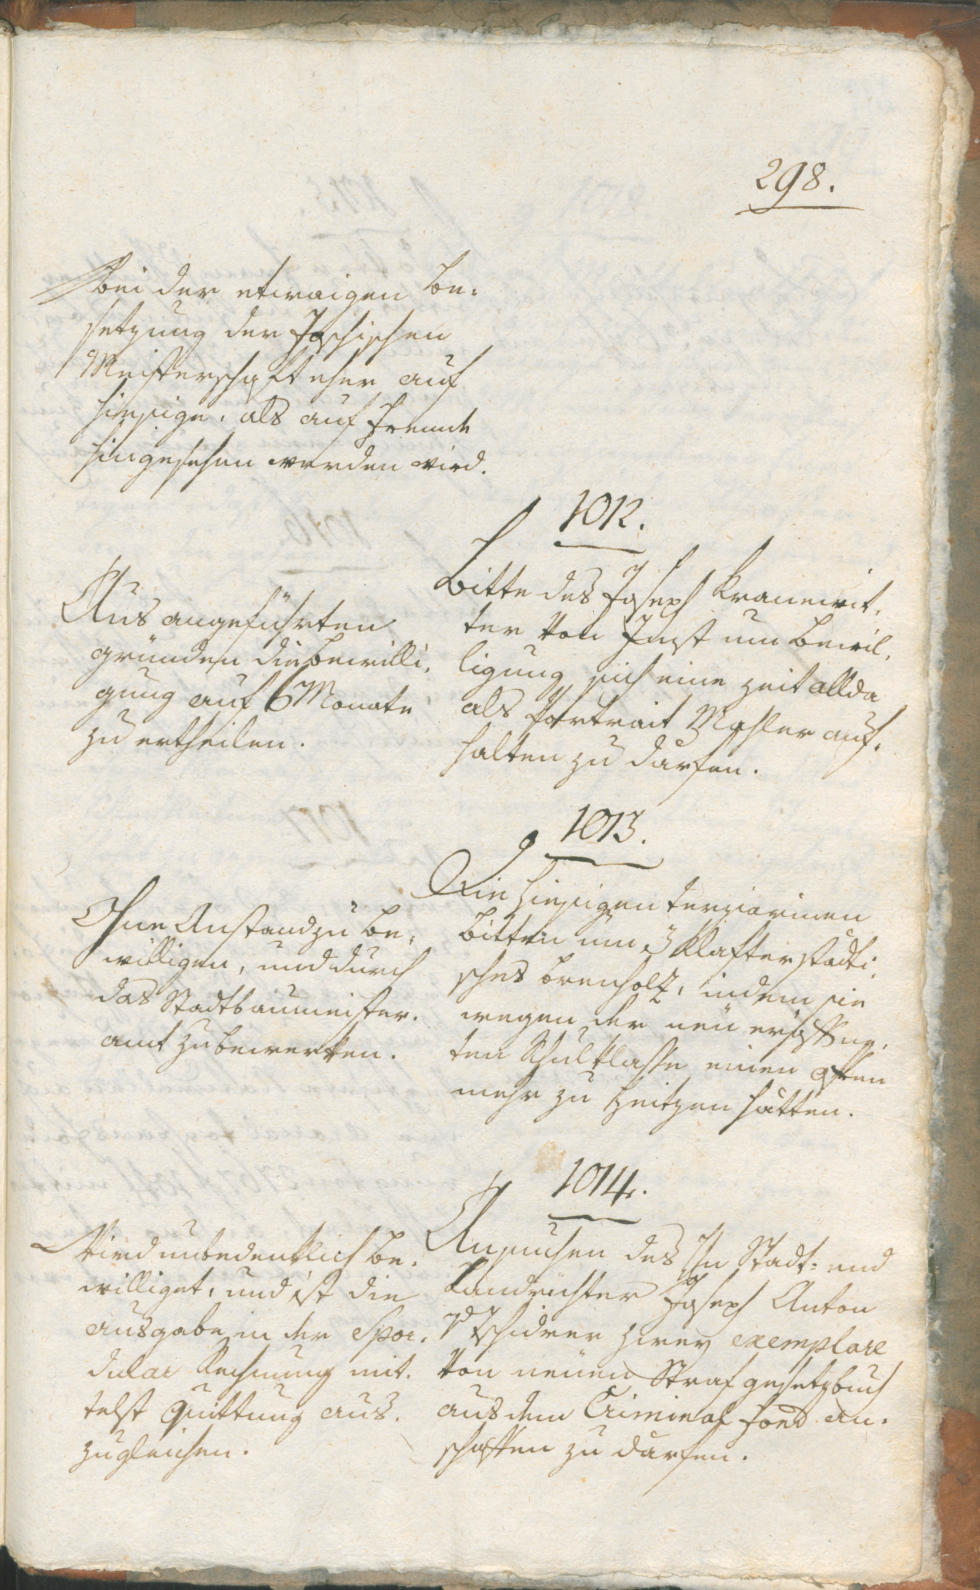 298.
bei der etwaigen Be-
setzung der Joschischen
Meisterschaft eher auf
hiesige, als auf Fremde
hingesehen werden wird.
1012.
Bitte des Joseph Kranewit-
ter von Imst um Bewil-
ligung sich eine Zeit allda
als Portrait Mahler auf-
halten zu därfen.
Aus angeführten
Gründen die Bewilli-
gung auf 6 Monate
zu ertheilen.
1013.
Die hiesigen Terziarinen
bitten um 3 Klafter städti-
sches Brenholz, indem sie
wegen der neü eröffne-
ten Schulklasse einen Ofen
mehr zu heitzen hätten.
Ohne Anstand zu be-
willigen, und durch
das Stadtbaumeister-
amt zu bewerken.
1014.
Ansuchen des Hn Stadt- und
Landrichter Joseph Anton
v Tschiderer zwey exemplare
von neüen Strafgesetzbuch
aus dem Criminal Fond an-
schaffen zu därfen.
Wird unbedenklich be-
williget, und ist die
Ausgabe in der Spor-
dular Rechnung mit-
telst Quittung aus-
zugleichen.